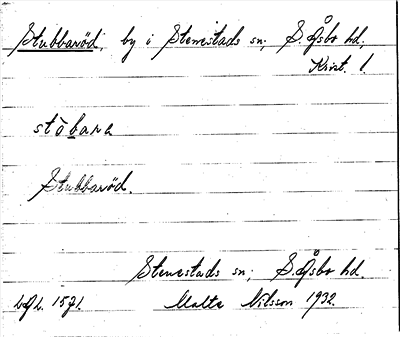 Stubbaröd, by i Stenestads sn; S. Åsbo hd,
Krist. l.
stòbara
Stubbaröd.
Stenestads sn; S. Åsbo hd.
1571. Malte Nilsson 1932.